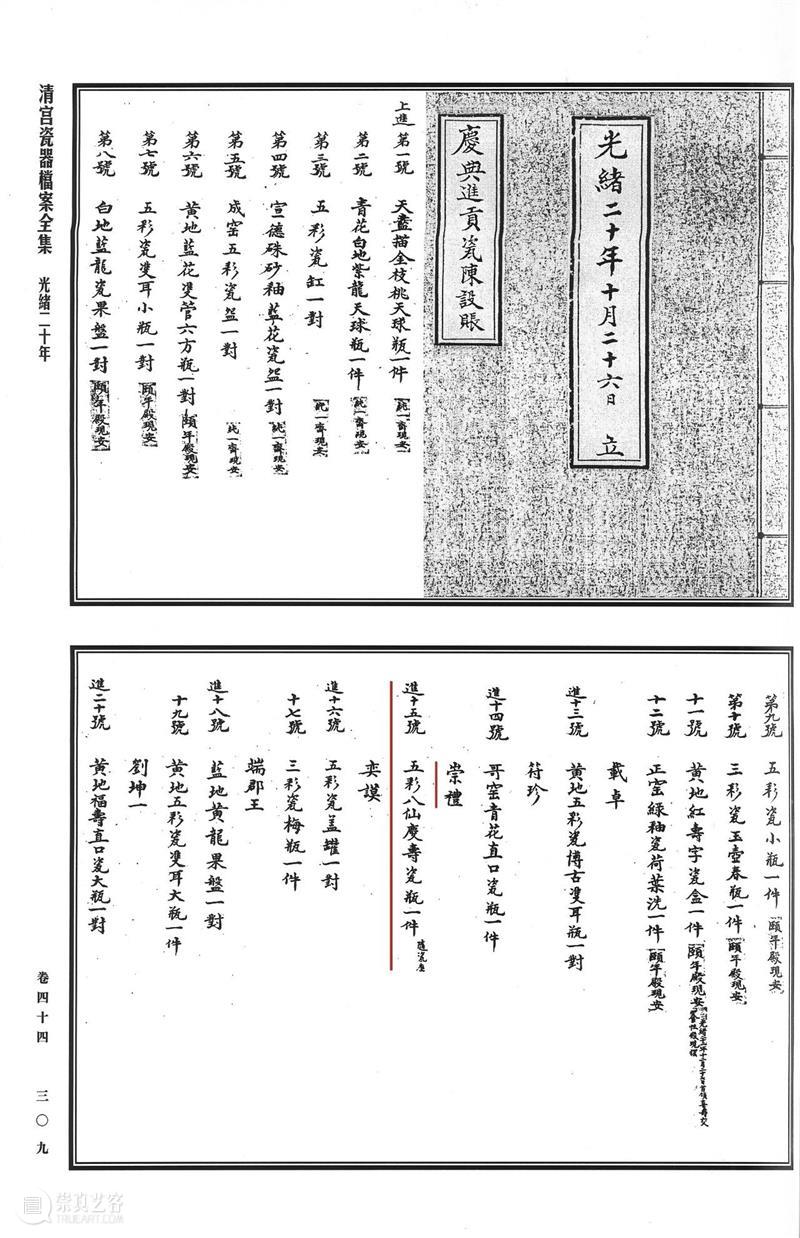 光緒二十年十月二十六日 立
慶典進貢瓷陳設賬
上進 第一號 天藍描金枝桃天球瓶一件 純一齋現安
第二號 青花白地紫龍天球瓶一件 純一齋現安
第三號 五彩瓷缸一對 純一齋現安
第四號 宣德硃砂釉藍花瓷盌一對 純一齋現安
第五號 成窑五彩瓷盌一對 純一齋現安
第六號 黃地藍花雙管六方瓶一對 頤年殿現安
第七號 五彩瓷雙耳小瓶一對 頤年殿現安
第八號 白地藍龍瓷果盤一對 頤年殿現安
清宮瓷器檔案全集 光緒二十年
第九號 五彩瓷小瓶一件 頤年殿現安
第十號 三彩瓷玉壺春瓶一件 頤年殿現安
十一號 黃地紅壽字瓷盒一件 頤年殿現安
十二號 正窑綠釉瓷荷葉洗一件 頤年殿現安
載卓
進十三號 黃地五彩瓷博古雙耳瓶一對
符珍
進十四號 哥窑青花直口瓷瓶一件
崇禮
進十五號 五彩八仙慶壽瓷瓶一件 隨瓷座
奕謨
進十六號 五彩瓷蓋罐一對
十七號 三彩瓷梅瓶一件
端郡王
進十八號 藍地黃龍果盤一對
十九號 黃地五彩瓷雙耳大瓶一件
劉坤一
進二十號 黃地福壽直口瓷大瓶一對
卷四十四 三〇九
崇真艺客
TRUEART.COM